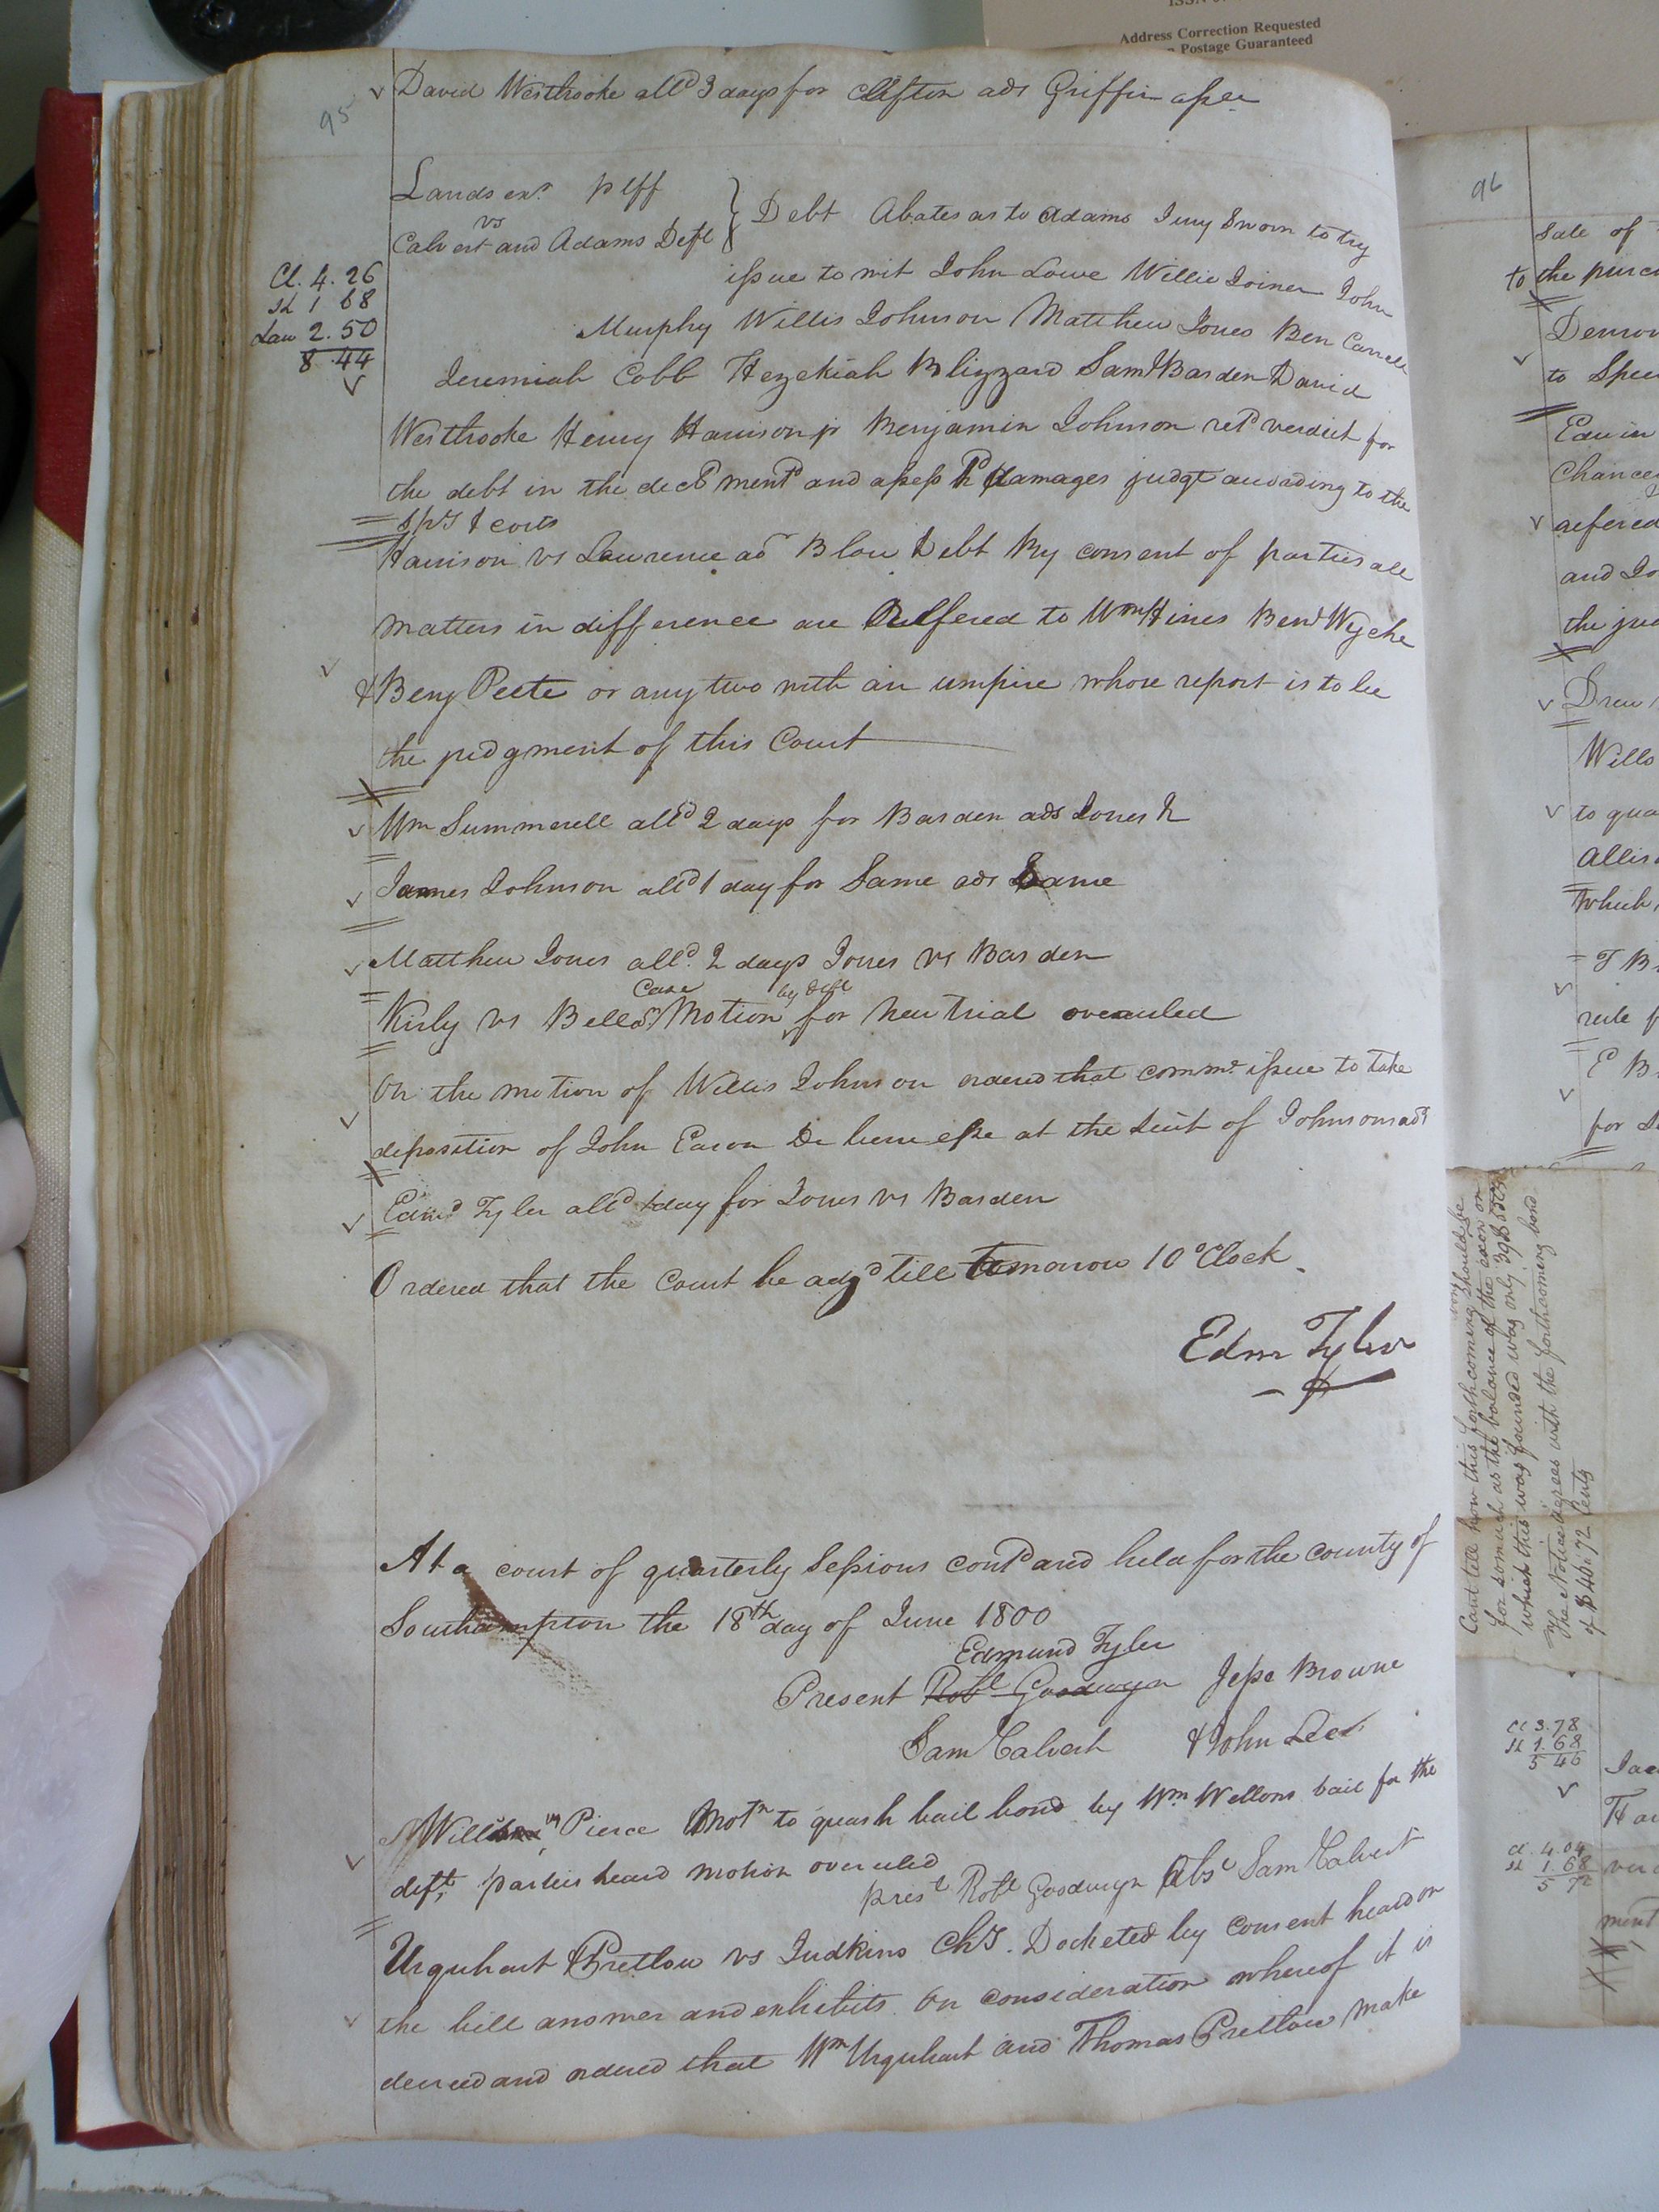 Address Correction Requested
Postage Guaranteed
95
David Westbrooke alld 3 days for Clifton ads Griffin assee
Lands exr plff
vs
Calvert and Adams Deft
Debt Abates as to Adams Jury Sworn to try
issue to wit John Lowe Willie Joiner John
Murphy Willis Johnson Matthew Jones Ben
Jeremiah Cobb Hezekiah Blizzard Saml Barden David
Westbrooke Henry Harrison jr Benjamin Johnson retd verdict for
the debt in the decl mentd and assess 1d damages judgt according to the
spt & costs
Cl. 4.26
Sh 1 68
Law 2.50
8.44
Harrison vs Lawrence ad Blow Debt By consent of parties all
matters in difference are Reffered to Wm Hines Benj Wyche
& Benj Peete or any two with an umpire whose report is to be
the judgment of this Court
Wm Summerell alld 2 days for Barden ads Jones
James Johnson alld 1 day for Same ads Same
Matthew Jones alld 2 days Jones vs Barden
Case by deft
Kirby vs Bell Motion for New trial overruled
On the motion of Willis Johnson ordered that commn issue to take
deposition of John Eason De bene esse at the Suit of Johnsons ads
Edmd Tyler alld 1 day for Jones vs Barden
Ordered that the Court be adjd till tomorrow 10 oClock
Edm Tyler
At a court of quarterly Sessions contd and held for the County of
Southampton the 18th day of June 1800
Edmund Tyler
Present Robt Goodwyn Jesse Browne
Sam Calvert & John Lee
Pierce Motn to quash bail bond by Wm Wellons bail for the
deft, parties heard motion overruled
prest Robt Goodwyn Abst Sam Calvert
Urquhart & Pretlow vs Judkins Chy. Docketed by consent heard on
the bill answer and exhibits. On consideration whereof it is
decreed and ordered that Wm Urquhart and Thomas Pretlow make
96
Sale of
to the
to
Chancer
and
the
Drew
Wills
to
which
for
Cant tell how this forthcoming bond should be
for so much as the balance of the exon on
which this was founded was only
The Notice agrees with the forthcoming bond
of $ 40: 72 Cents
Cl 3.78
Sh 1.68
5 46
Cl. 4.04
Sh 1.68
5 72